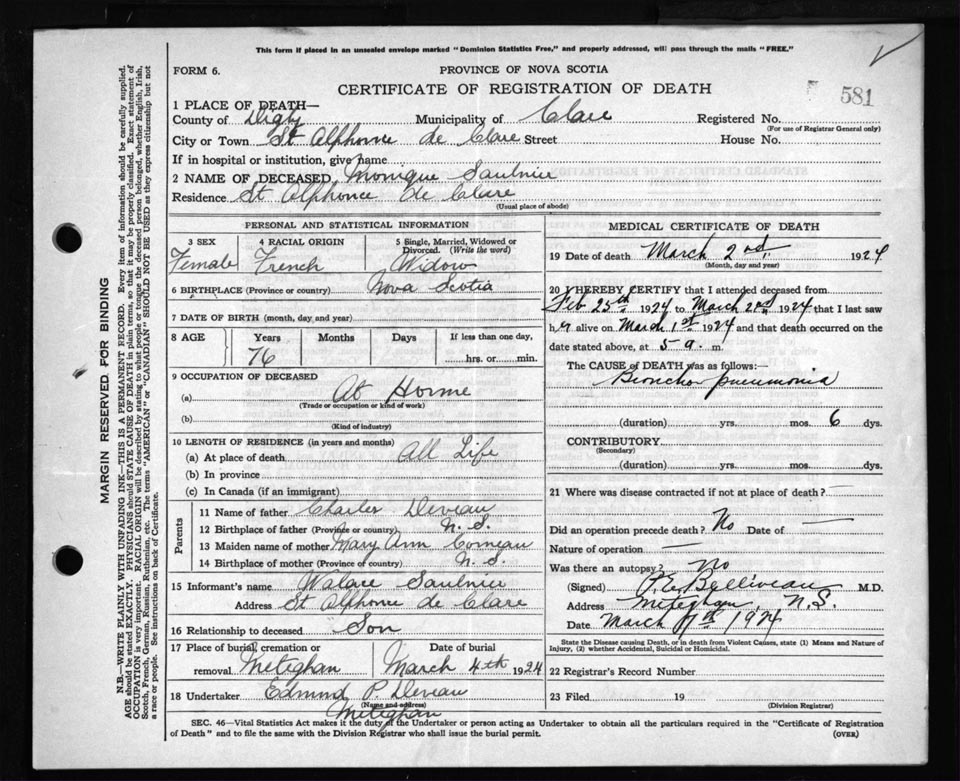 This form if placed in an unsealed envelope marked "Dominion Statistics Free," and properly addressed, will pass through the mails "FREE."
FORM 6.
PROVINCE OF NOVA SCOTIA
CERTIFICATE OF REGISTRATION OF DEATH
581
1 PLACE OF DEATH—
County of Digby Municipality of Clare Registered No.
(For use of Registrar General only)
City or Town St Alphonse de Clare Street House No.
If in hospital or institution, give name
2 NAME OF DECEASED Monique Saulnier
Residence St Alphonse de Clare
(Usual place of abode)
PERSONAL AND STATISTICAL INFORMATION
3 SEX 4 RACIAL ORIGIN 5 Single, Married, Widowed or Divorced. (Write the word)
Female French Widow
6 BIRTHPLACE (Province or country) Nova Scotia
7 DATE OF BIRTH (month, day and year)
8 AGE Years Months Days If less than one day,
76 hrs. or min.
9 OCCUPATION OF DECEASED
(a) At Home
(Trade or occupation or kind of work)
(b)
(Kind of industry)
10 LENGTH OF RESIDENCE (in years and months)
(a) At place of death All Life
(b) In province
(c) In Canada (if an immigrant)
Parents
11 Name of father Charles Deveau
12 Birthplace of father (Province or country) N. S.
13 Maiden name of mother Mary Ann Comeau
14 Birthplace of mother (Province or country) N. S.
15 Informant's name Walace Saulnier
Address St Alphonse de Clare
16 Relationship to deceased Son
17 Place of burial, cremation or removal Meteghan
Date of burial March 4th 1924
18 Undertaker Edmund P. Deveau
(Name and address)
Meteghan
MEDICAL CERTIFICATE OF DEATH
19 Date of death March 2nd 1924
(Month, day and year)
20 I HEREBY CERTIFY that I attended deceased from
Feb 25th 1924 to March 2nd 1924 that I last saw
h er alive on March 1st 1924 and that death occurred on the
date stated above, at 5 a. m.
The CAUSE of DEATH was as follows:—
Broncho pneumonia
(duration) yrs. mos. 6 dys.
CONTRIBUTORY
(Secondary)
(duration) yrs. mos. dys.
21 Where was disease contracted if not at place of death?
Did an operation precede death? No Date of —
Nature of operation —
Was there an autopsy? No
(Signed) P. E. Belliveau M.D.
Address Meteghan, N.S.
Date March 1924
State the Disease causing Death, or in death from Violent Causes, state (1) Means and Nature of
Injury, (2) whether Accidental, Suicidal or Homicidal.
22 Registrar's Record Number
23 Filed 19
(Division Registrar)
SEC. 46—Vital Statistics Act makes it the duty of the Undertaker or person acting as Undertaker to obtain all the particulars required in the "Certificate of Registration
of Death" and to file the same with the Division Registrar who shall issue the burial permit.
(OVER)
MARGIN RESERVED FOR BINDING
N.B.—WRITE PLAINLY WITH UNFADING INK—THIS IS A PERMANENT RECORD. Every item of information should be carefully supplied.
AGE should be stated EXACTLY. PHYSICIANS should STATE CAUSE OF DEATH in plain terms, so that it may be properly classified. Exact statement of
OCCUPATION is very important. RACIAL ORIGIN will be described by stating to what people or tongue the deceased person belonged, whether English, Irish,
Scotch, French, German, Russian, Ruthenian, etc. The terms "AMERICAN" or "CANADIAN" SHOULD NOT BE USED as they express citizenship but not
a race or people. See instructions on back of Certificate.